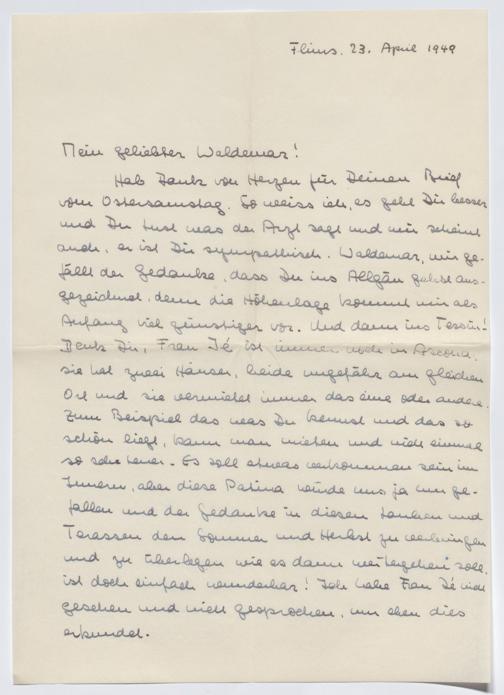 Flims. 23. April 1949
Mein geliebter Waldemar!
Hab Dank von Herzen für Deinen Brief
vom Ostersamstag. So weiss ich, es geht Dir besser
und Du tust was der Arzt sagt und mir scheint
auch, er ist Dir sympathisch. Waldemar, mir ge-
fällt der Gedanke, dass Du ins Allgäu gehst aus-
gezeichnet, denn die Höhenlage kommt mir als
Anfang viel günstiger vor. Und dann ins Tessin!
Denk Dir, Frau Jé ist immer noch in Ascona,
sie hat zwei Häuser, beide ungefähr am gleichen
Ort und sie vermietet immer das eine oder andere.
Zum Beispiel das was Du kennst und das so
schön liegt, kann man mieten und nicht einmal
so sehr teuer. Es soll etwas verkommen sein im
Innern, aber diese Patina würde uns ja nur ge-
fallen und der Gedanke in diesen Lauben und
Terassen den Sommer und Herbst zu verbringen
und zu überlegen wie es dann weitergehen soll,
ist doch einfach wunderbar! Ich habe Frau Jé nicht
gesehen und nicht gesprochen, nur eben dies
erkundet.